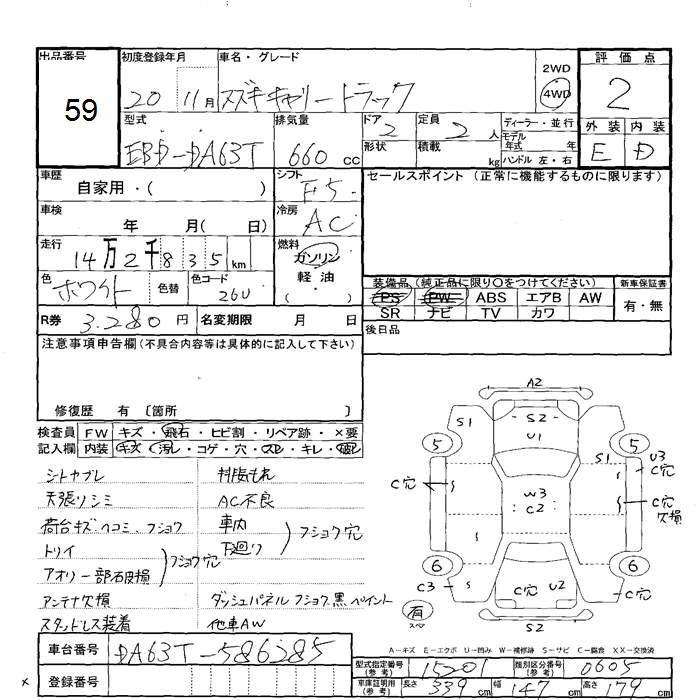 出品番号 初度登録年月 車名・グレード 2WD 評価点
59 20 11月 スズキキャリートラック 4WD 2
型式 排気量 ドア 定員 ディーラー・並行 外装 内装
EBD-DA63T 660cc 2 2人 モデル年式 年 E D
形状 積載 kg ハンドル 左・右
車歴 自家用・( ) シフト F5 セールスポイント (正常に機能するものに限ります)
車検 年 月( 日) 冷房 AC
走行 14万2千835km 燃料 ガソリン
色 ホワイト 色替 色コード 26U 軽油 ( )
装備品(純正品に限り○をつけてください) 新車保証書
PS PW ABS エアB AW 有・無
SR ナビ TV カワ
R券 3.280円 名変期限 月 日 後日品
注意事項申告欄(不具合内容等は具体的に記入して下さい)
修復歴 有 〔箇所 〕
検査員 FW キズ・飛石・ヒビ割・リペア跡・×要
記入欄 内装 キズ・汚レ・コゲ・穴・スレ・キレ・
シートヤブレ
天張りシミ AC不良
荷台キズ、ヘコミ、フショク 車内
トリイ 下廻り フショク穴
フショク穴
アオリ一部石皮損
アンテナ欠損 ダッシュパネルフショク、黒ペイント
スタッドレス装着 他車AW
A2
S1 S2 S1
U1
5 5
U3
C穴
C穴 W3 C穴
C2 欠損
6 6
C3 S C穴 U2 C穴
有
スペア
S2
A-キズ E-エクボ U-凹み W-補修跡 S-サビ C-腐食 XX-交換済
車台番号 DA63T-586285
登録番号
型式指定番号(参考) 15201 類別区分番号(参考) 0605
車庫証明用(参考) 長さ 339cm 幅 147cm 高さ 179cm
x